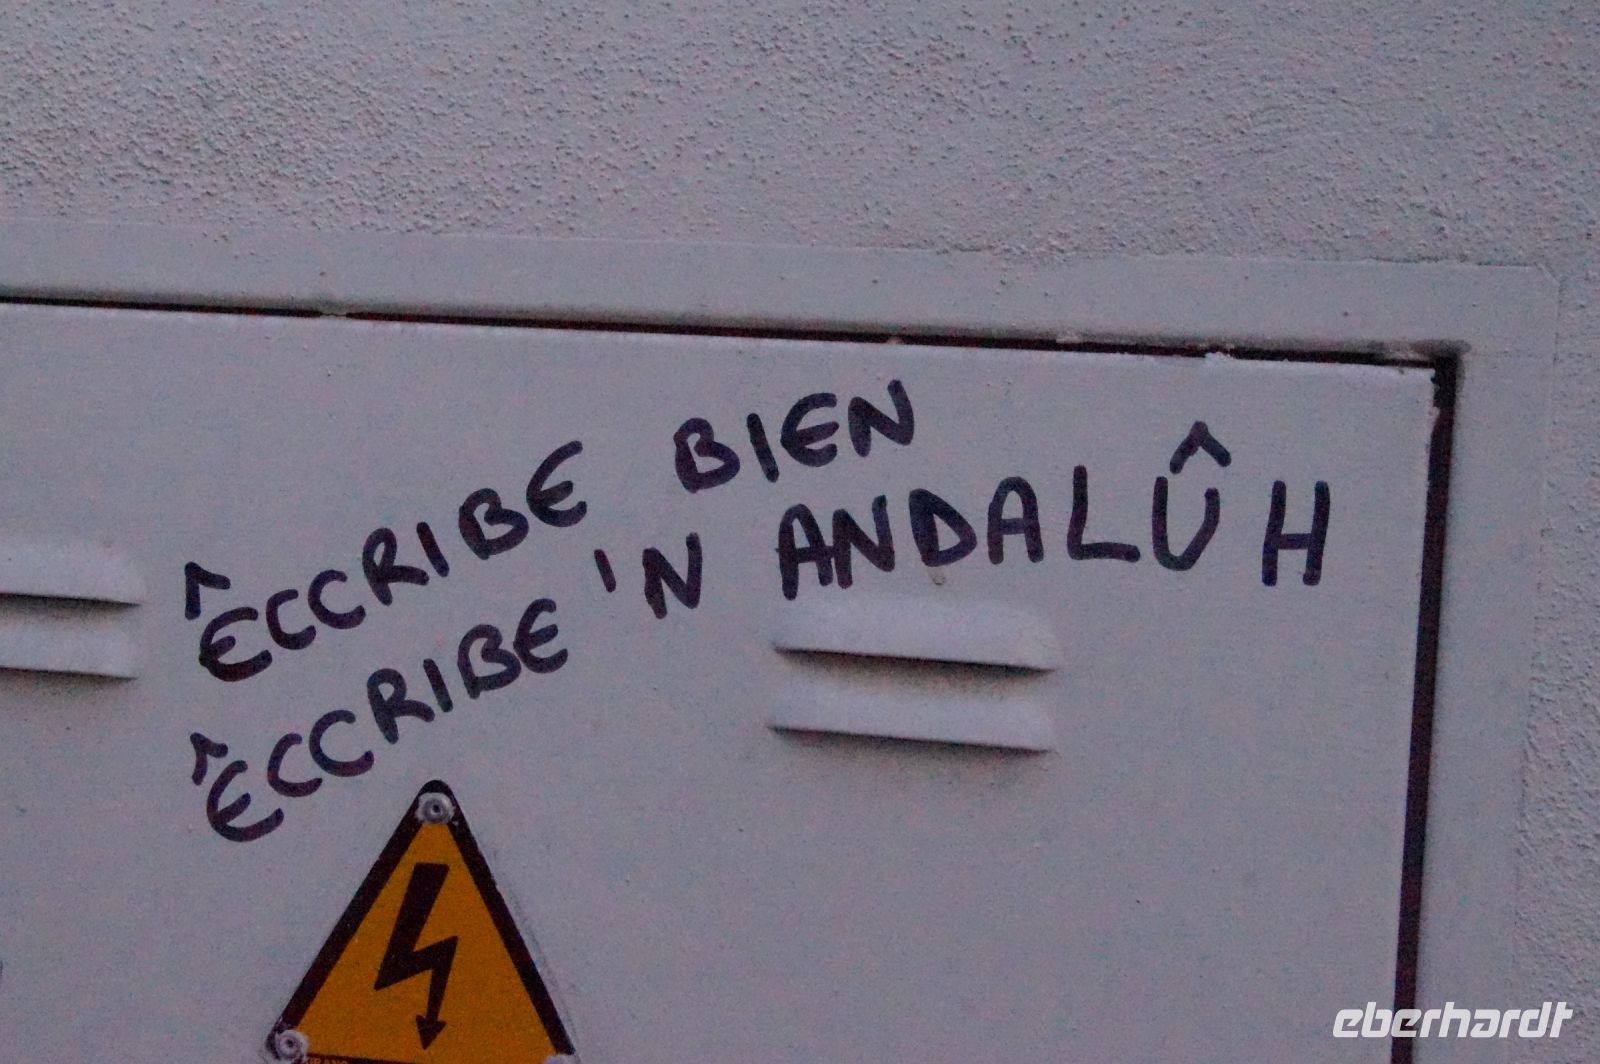 ÊCCRIBE BIEN
ÊCCRIBE 'N ANDALÛH
eberhardt